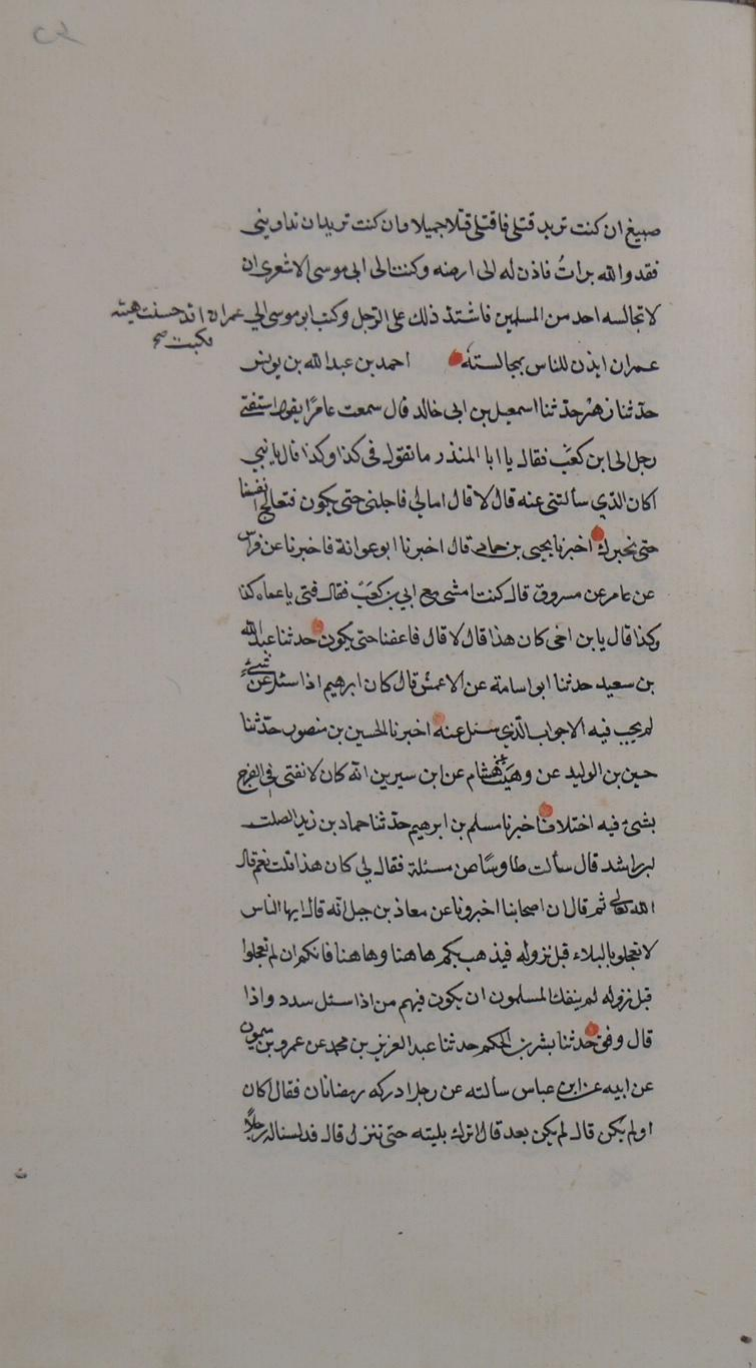 صبيغ ان كنت تريد قتلى فاقتلى قتلا جميلا وان كنت تريدان تداوينى
فقد والله برات فاذن له الى ارضه وكتب الى ابى موسى الاشعرى ان
لا تجالسه احد من المسلمين فاشتد ذلك على الرجل وكتب ابو موسى الى عمران قد حسنت هيئته
فكتب صح
عمران ايذن للناس بمجالسته احمد بن عبد الله بن يونس
حدثنا زهير حدثنا اسمعيل بن ابى خالد قال سمعت عامرا يقول استفتى
رجل ابى ابن كعب فقال يا ابا المنذر ما تقول فى كذا وكذا قال يا بنى
اكان الذي سالتنى عنه قال لا قال امالي فاجلنى حتى يكون فتعالج انفسنا
حتى نخبرك اخبرنا يحيى بن حماد قال اخبرنا ابو عوانة فاخبرنا عن فراس
عن عامر عن مسروق قال كنت امشى مع ابي بن كعب فقال فتى يا عماه كذا
وكذا قال يا بن اخى كان هذا قال لا قال فاعفنا حتى يكون حدثنا عبد الله
بن سعيد حدثنا ابو اسامة عن الاعمش قال كان ابرهيم اذا سئل عن شئ
لم يجيب فيه الا جواب الذي سئل عنه اخبرنا الحسين بن منصور حدثنا
حين بن الوليد عن وهيب عن هشام عن ابن سيرين انه كان لا نفتى فى الفرج
بشئ فيه اختلاف اخبرنا مسلم بن ابرهيم حدثنا حماد بن زيد الصلت
بن راشد قال سألت طاوسا عن مسئلة فقال لى كان هذا قلت نعم قال
الله تعالى ثم قال ان اصحابنا اخبرونا عن معاذ بن جبل انه قال ايها الناس
لا تعجلوا بالبلاء قبل نزوله فيذهب بكم هاهنا وهاهنا فانكم ان لم تعجلوا
قبل نزوله لم ينفك المسلمون ان يكون فيهم من اذا سئل سدد واذا
قال وفق حدثنا بشر بن الحكم حدثنا عبد العزيز بن محمد عن عمرو بن ميمون
عن ابيه عن ابن عباس سالته عن رجل ادركه رمضانان فقال اكان
او لم يكن قال لم يكن بعد قال اترك بليته حتى تنزل قال فدلسنا له رجلا